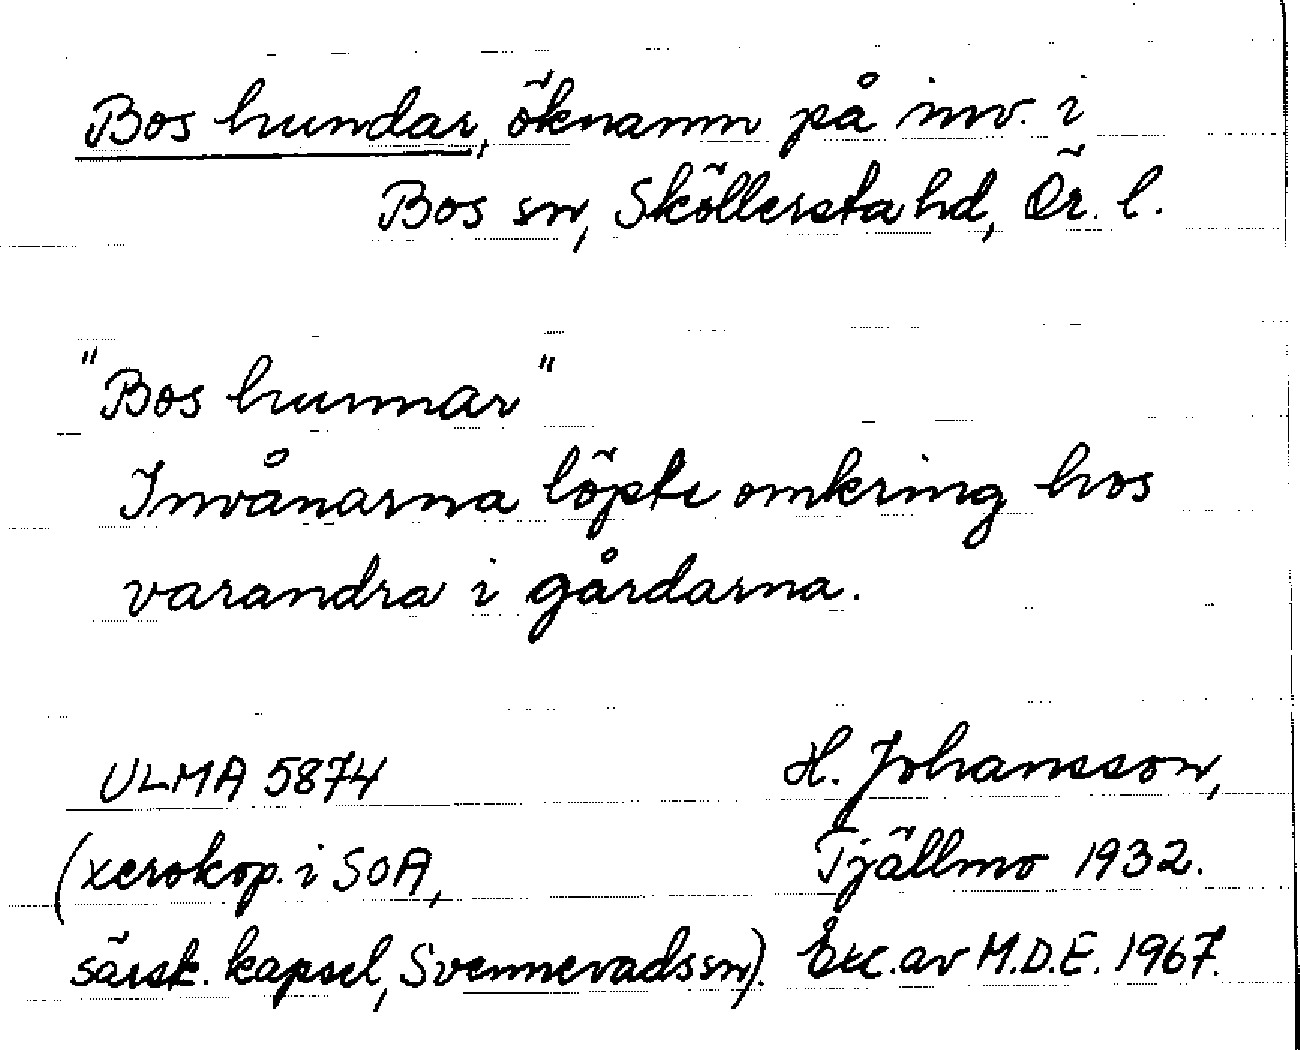 Bos hundar, öknamn på inv. i
Bos sn, Sköllersta hd, Ör. l.
"Bos hunnar"
Invånarna löpte omkring hos
varandra i gårdarna.
ULMA 5874
H. Johansson,
(xerokop. i SOA,
Tjällmo 1932.
särsk. kapsel, Svennevads sn).
Exc. av M.D.E. 1967.